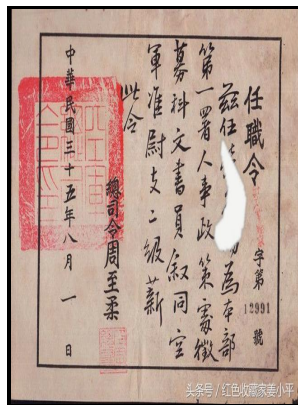 任職令
字第12991號
茲任 為本部
第一四署人事政策處徵
募科文書員敘同空
軍准尉支二級薪
此令
總司令周至柔
中華民國三十五年八月一日
头条号／红色收藏家姜小平